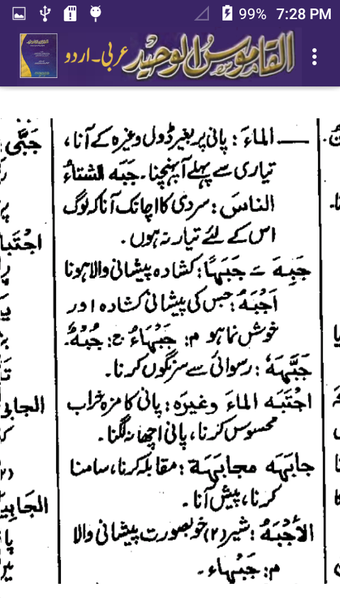 99% 7:28 PM
القاموس الوحید عربی۔اردو
— الماءَ : پانی پر بغیر ڈول وغیرہ کے آنا،
تیاری سے پہلے آپہنچنا۔ جَبَهَ الشتاءُ
الناسَ : سردی کا اچانک آنا کہ لوگ
اس کے لئے تیار نہ ہوں۔
جَبِهَ ـَ جَبَهًا : کشادہ پیشانی والا ہونا
اَجْبَهُ : جس کی پیشانی کشادہ اور
خوش نما ہو م: جَبْهَاءُ ج: جُبْهٌ۔
جَبَّهَهٗ : رسوائی سے سرنگوں کرنا۔
اجْتَبَهَ الماءَ وغیرَه : پانی کا مزہ خراب
محسوس کرنا، پانی اچھا نہ لگنا۔
جابَهَه مجابَهَة : مقابلہ کرنا، سامنا
کرنا، پیش آنا۔
الأجْبَهُ : شیر (۲) خوبصورت پیشانی والا
م: جَبْهاء۔
جَبّٰی
اجْتَبا
الجابی
(۲)
الجَابِیَ